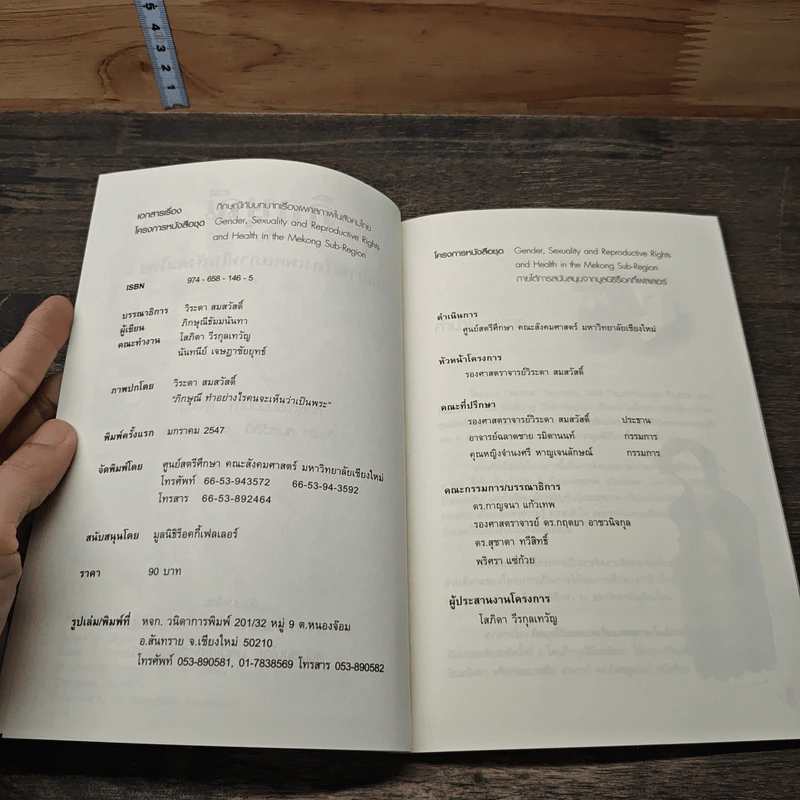 5
4
3
2
1
เอกสารเรื่อง ภิกษุณีกับบทบาทเรื่องเพศสภาพในสังคมไทย
โครงการหนังสือชุด Gender, Sexuality and Reproductive Rights
and Health in the Mekong Sub-Region
ISBN 974 - 658 - 146 - 5
บรรณาธิการ วิระดา สมสวัสดิ์
ผู้เขียน ภิกษุณีธัมมนันทา
คณะทำงาน โสภิดา วีรกุลเทวัญ
นันทนีย์ เจษฎาชัยยุทธ์
ภาพปกโดย วิระดา สมสวัสดิ์
"ภิกษุณี ทำอย่างไรคนจะเห็นว่าเป็นพระ"
พิมพ์ครั้งแรก มกราคม 2547
จัดพิมพ์โดย ศูนย์สตรีศึกษา คณะสังคมศาสตร์ มหาวิทยาลัยเชียงใหม่
โทรศัพท์ 66-53-943572 66-53-94-3592
โทรสาร 66-53-892464
สนับสนุนโดย มูลนิธิร็อคกี้เฟลเลอร์
ราคา 90 บาท
รูปเล่ม/พิมพ์ที่ หจก. วนิดาการพิมพ์ 201/32 หมู่ 9 ต.หนองจ๊อม
อ.สันทราย จ.เชียงใหม่ 50210
โทรศัพท์ 053-890581, 01-7838569 โทรสาร 053-890582
โครงการหนังสือชุด Gender, Sexuality and Reproductive Rights
and Health in the Mekong Sub-Region
ภายใต้การสนับสนุนจากมูลนิธิร็อคกี้เฟลเลอร์
ดำเนินการ
ศูนย์สตรีศึกษา คณะสังคมศาสตร์ มหาวิทยาลัยเชียงใหม่
หัวหน้าโครงการ
รองศาสตราจารย์วิระดา สมสวัสดิ์
คณะที่ปรึกษา
รองศาสตราจารย์วิระดา สมสวัสดิ์ ประธาน
อาจารย์ฉลาดชาย รมิตานนท์ กรรมการ
คุณหญิงจำนงศรี หาญเจนลักษณ์ กรรมการ
คณะกรรมการ/บรรณาธิการ
ดร.กาญจนา แก้วเทพ
รองศาสตราจารย์ ดร.กฤตยา อาชวนิจกุล
ดร.สุชาดา ทวีสิทธิ์
พริศรา แซ่ก้วย
ผู้ประสานงานโครงการ
โสภิดา วีรกุลเทวัญ